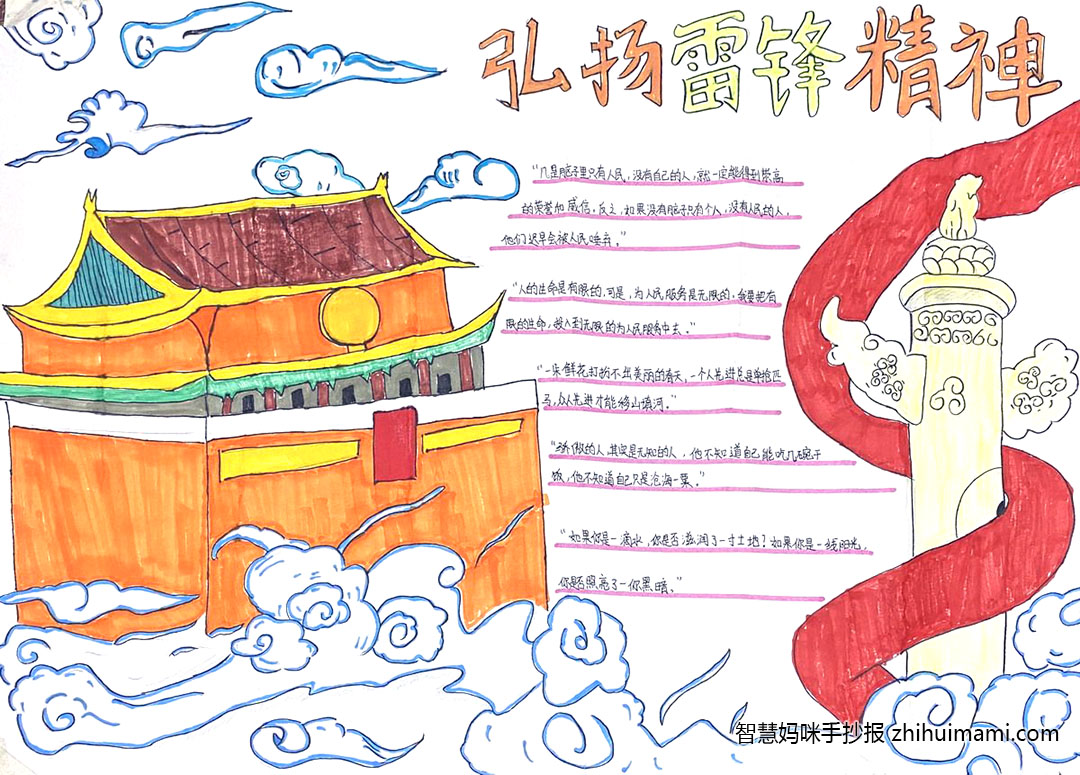 弘扬雷锋精神
"凡是脑子里只有人民，没有自己的人，就一定能得到崇高
的荣誉和威信。反之，如果没有脑子只有个人，没有人民的人，
他们迟早会被人民唾弃。"
"人的生命是有限的，可是，为人民服务是无限的，我要把有
限的生命，投入到无限的为人民服务中去。"
"一朵鲜花打扮不出美丽的春天，一个人先进总是单枪匹
马，众人先进才能移山填河。"
"骄傲的人，其实是无知的人，他不知道自己能吃几碗干
饭，他不知道自己只是沧海一粟。"
"如果你是一滴水，你是否滋润了一寸土地？如果你是一线阳光，
你是否照亮了一你黑暗。"
智慧妈咪手抄报 zhihuimami.com